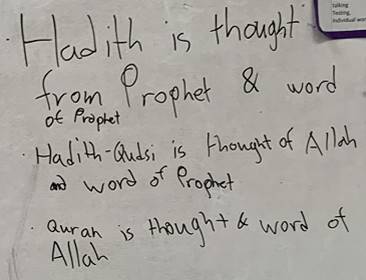 talking
Testing,
individual wor
· Hadith is thought
from Prophet & word
of Prophet
· Hadith-Qudsi is thought of Allah
and word of Prophet
· Quran is thought & word of
Allah